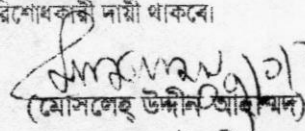 রিশোধকারী দায়ী থাকবে।
(মোসলেহ্ উদ্দীন আহাম্মদ)